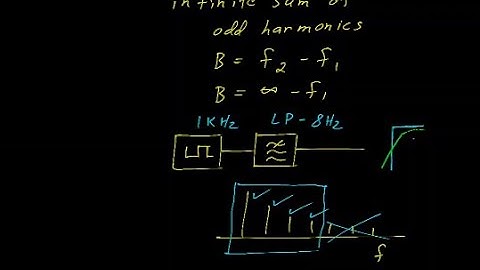 infinite sum of
odd harmonics
B = f2 - f1
B = ∞ - f1
1KHz LP-8Hz
f